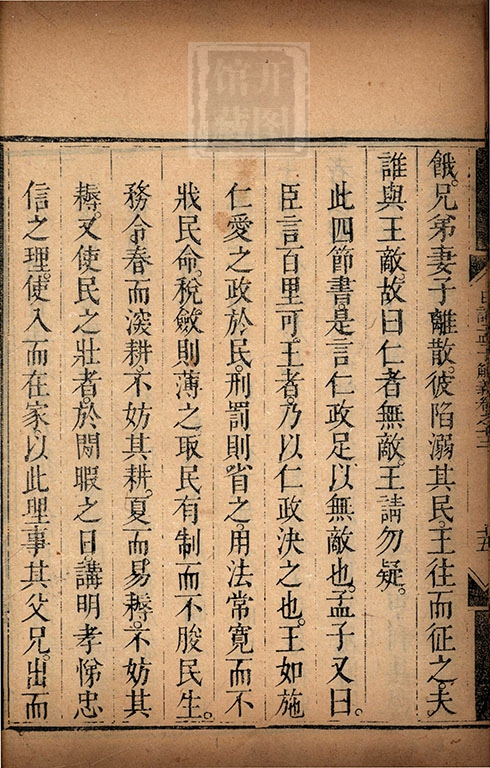 餓。兄弟妻子離散。彼陷溺其民。王往而征之。夫
誰與王敵。故曰仁者無敵。王請勿疑。
此四節書。是言仁政足以無敵也。孟子又曰。
臣言百里可王者。乃以仁政決之也。王如施
仁愛之政於民。刑罰則省之。用法常寛而不
戕民命。稅斂則薄之。取民有制而不朘民生。
務令春而深耕。不妨其耕。夏而易耨。不妨其
耨。又使民之壯者。於閒暇之日。講明孝悌忠
信之理。使入而在家。以此理事其父兄。出而
日講孟子解義卷之十三
開圖館藏